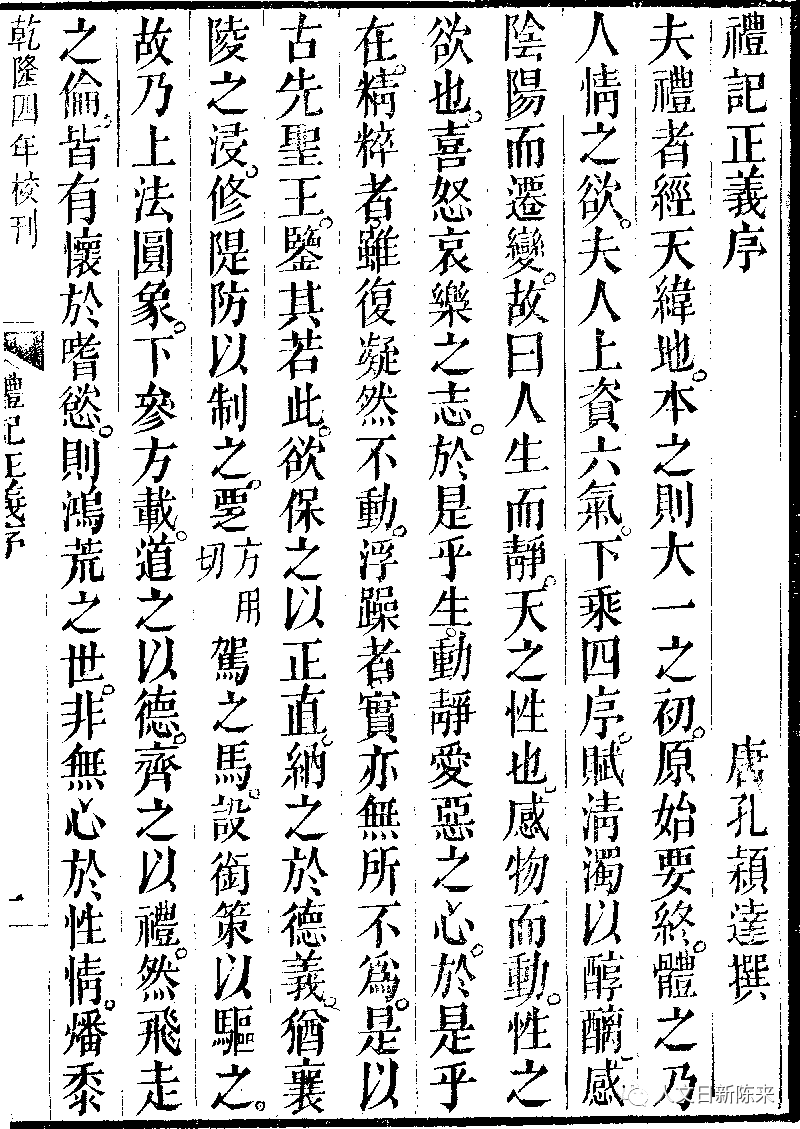 禮記正義序
唐孔穎達撰
夫禮者經天緯地。本之則大一之初。原始要終。體之乃
人情之欲。夫人上資六氣。下乘四序。賦清濁以醇醨。感
陰陽而遷變。故曰人生而靜。天之性也。感物而動。性之
欲也。喜怒哀樂之志。於是乎生。動靜愛惡之心。於是乎
在。精粹者雖復凝然不動。浮躁者實亦無所不為。是以
古先聖王。鑒其若此。欲保之以正直。納之於德義。猶襄
陵之浸。修隄防以制之。覂方用切駕之馬。設銜策以驅之。
故乃上法圓象。下參方載。道之以德。齊之以禮。然飛走
之倫。皆有懷於嗜慾。則鴻荒之世。非無心於性情。燔黍
乾隆四年校刊
禮記正義序
一
人文日新陈来